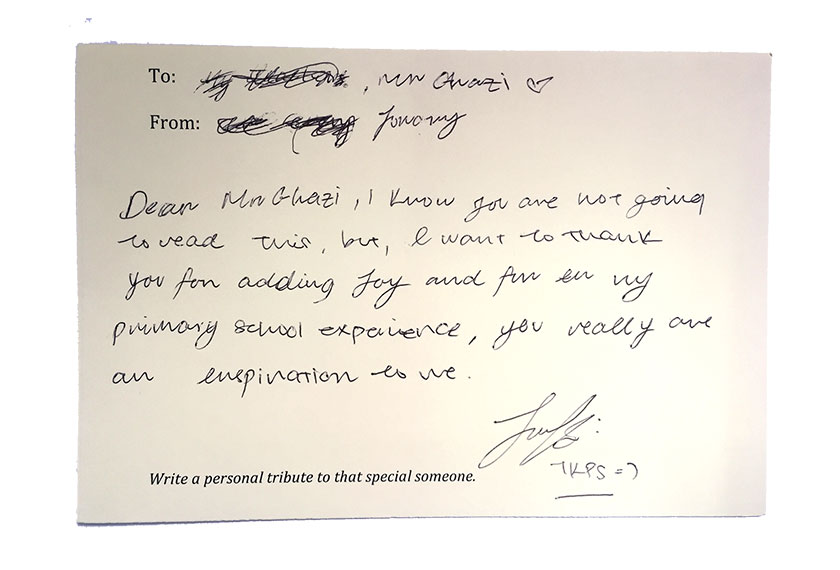 To: , Mr Ghazi ♡
From:
Dear Mr Ghazi, I know you are not going
to read this, but, I want to thank
you for adding joy and fun in my
primary school experience, you really are
an inspiration to me.
TKPS =)
Write a personal tribute to that special someone.